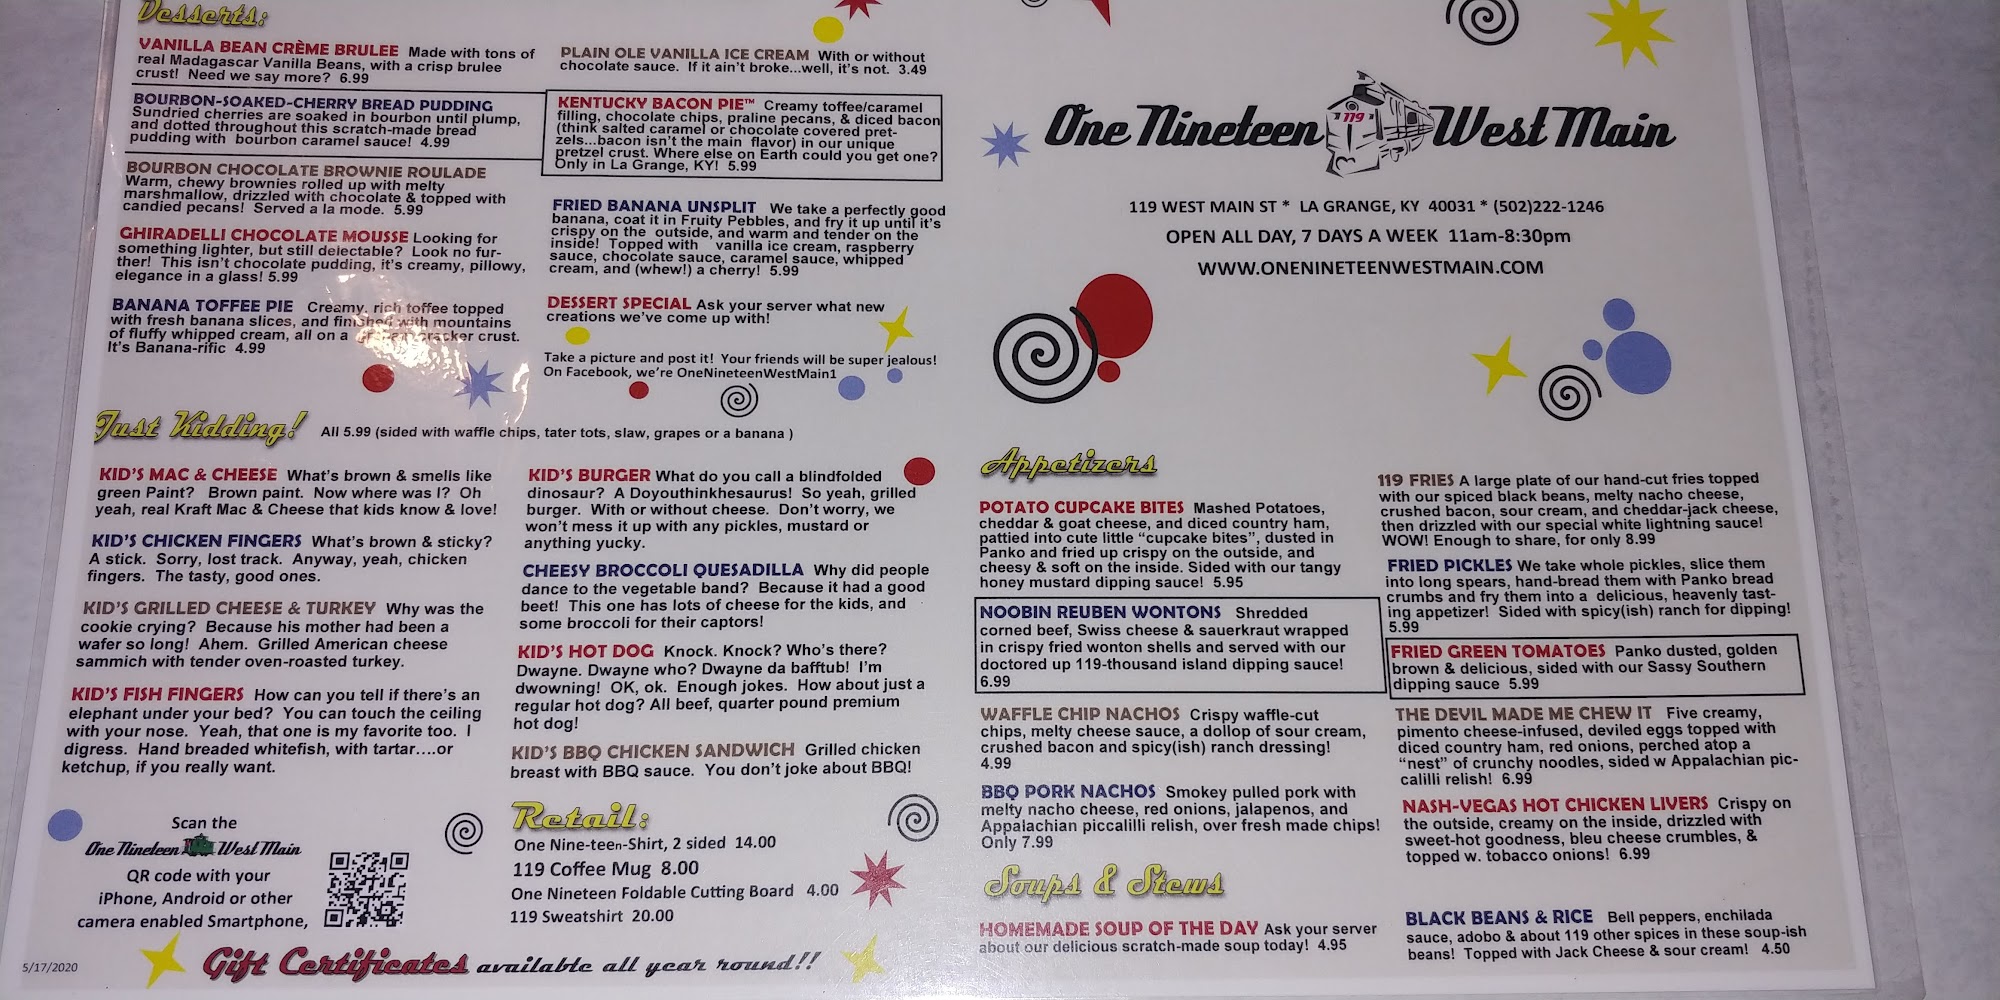 Desserts:
VANILLA BEAN CRÈME BRULEE Made with tons of
real Madagascar Vanilla Beans, with a crisp brulee
crust! Need we say more? 6.99
BOURBON-SOAKED-CHERRY BREAD PUDDING
Sundried cherries are soaked in bourbon until plump,
and dotted throughout this scratch-made bread
pudding with bourbon caramel sauce! 4.99
BOURBON CHOCOLATE BROWNIE ROULADE
Warm, chewy brownies rolled up with melty
marshmallow, drizzled with chocolate & topped with
candied pecans! Served a la mode. 5.99
GHIRADELLI CHOCOLATE MOUSSE Looking for
something lighter, but still delectable? Look no fur-
ther! This isn't chocolate pudding, it's creamy, pillowy,
elegance in a glass! 5.99
BANANA TOFFEE PIE Creamy, rich toffee topped
with fresh banana slices, and finished with mountains
of fluffy whipped cream, all on a cracker crust.
It's Banana-rific 4.99
PLAIN OLE VANILLA ICE CREAM With or without
chocolate sauce. If it ain't broke...well, it's not. 3.49
KENTUCKY BACON PIE™ Creamy toffee/caramel
filling, chocolate chips, praline pecans, & diced bacon
(think salted caramel or chocolate covered pret-
zels...bacon isn't the main flavor) in our unique
pretzel crust. Where else on Earth could you get one?
Only in La Grange, KY! 5.99
FRIED BANANA UNSPLIT We take a perfectly good
banana, coat it in Fruity Pebbles, and fry it up until it's
crispy on the outside, and warm and tender on the
inside! Topped with vanilla ice cream, raspberry
sauce, chocolate sauce, caramel sauce, whipped
cream, and (whew!) a cherry! 5.99
DESSERT SPECIAL Ask your server what new
creations we've come up with!
Take a picture and post it! Your friends will be super jealous!
On Facebook, we're OneNineteenWestMain1
Just Kidding! All 5.99 (sided with waffle chips, tater tots, slaw, grapes or a banana )
KID'S MAC & CHEESE What's brown & smells like
green Paint? Brown paint. Now where was I? Oh
yeah, real Kraft Mac & Cheese that kids know & love!
KID'S CHICKEN FINGERS What's brown & sticky?
A stick. Sorry, lost track. Anyway, yeah, chicken
fingers. The tasty, good ones.
KID'S GRILLED CHEESE & TURKEY Why was the
cookie crying? Because his mother had been a
wafer so long! Ahem. Grilled American cheese
sammich with tender oven-roasted turkey.
KID'S FISH FINGERS How can you tell if there's an
elephant under your bed? You can touch the ceiling
with your nose. Yeah, that one is my favorite too. I
digress. Hand breaded whitefish, with tartar....or
ketchup, if you really want.
KID'S BURGER What do you call a blindfolded
dinosaur? A Doyouthinkhesaurus! So yeah, grilled
burger. With or without cheese. Don't worry, we
won't mess it up with any pickles, mustard or
anything yucky.
CHEESY BROCCOLI QUESADILLA Why did people
dance to the vegetable band? Because it had a good
beet! This one has lots of cheese for the kids, and
some broccoli for their captors!
KID'S HOT DOG Knock. Knock? Who's there?
Dwayne. Dwayne who? Dwayne da bafftub! I'm
dwowning! OK, ok. Enough jokes. How about just a
regular hot dog? All beef, quarter pound premium
hot dog!
KID'S BBQ CHICKEN SANDWICH Grilled chicken
breast with BBQ sauce. You don't joke about BBQ!
Scan the
One Nineteen West Main
QR code with your
iPhone, Android or other
camera enabled Smartphone,
Retail:
One Nine-teen-Shirt, 2 sided 14.00
119 Coffee Mug 8.00
One Nineteen Foldable Cutting Board 4.00
119 Sweatshirt 20.00
5/17/2020
Gift Certificates available all year round!!
One Nineteen 119 West Main
119 WEST MAIN ST * LA GRANGE, KY 40031 * (502)222-1246
OPEN ALL DAY, 7 DAYS A WEEK 11am-8:30pm
WWW.ONENINETEENWESTMAIN.COM
Appetizers
POTATO CUPCAKE BITES Mashed Potatoes,
cheddar & goat cheese, and diced country ham,
pattied into cute little "cupcake bites", dusted in
Panko and fried up crispy on the outside, and
cheesy & soft on the inside. Sided with our tangy
honey mustard dipping sauce! 5.95
NOOBIN REUBEN WONTONS Shredded
corned beef, Swiss cheese & sauerkraut wrapped
in crispy fried wonton shells and served with our
doctored up 119-thousand island dipping sauce!
6.99
WAFFLE CHIP NACHOS Crispy waffle-cut
chips, melty cheese sauce, a dollop of sour cream,
crushed bacon and spicy(ish) ranch dressing!
4.99
BBQ PORK NACHOS Smokey pulled pork with
melty nacho cheese, red onions, jalapenos, and
Appalachian piccalilli relish, over fresh made chips!
Only 7.99
119 FRIES A large plate of our hand-cut fries topped
with our spiced black beans, melty nacho cheese,
crushed bacon, sour cream, and cheddar-jack cheese,
then drizzled with our special white lightning sauce!
WOW! Enough to share, for only 8.99
FRIED PICKLES We take whole pickles, slice them
into long spears, hand-bread them with Panko bread
crumbs and fry them into a delicious, heavenly tast-
ing appetizer! Sided with spicy(ish) ranch for dipping!
5.99
FRIED GREEN TOMATOES Panko dusted, golden
brown & delicious, sided with our Sassy Southern
dipping sauce 5.99
THE DEVIL MADE ME CHEW IT Five creamy,
pimento cheese-infused, deviled eggs topped with
diced country ham, red onions, perched atop a
"nest" of crunchy noodles, sided w Appalachian pic-
calilli relish! 6.99
NASH-VEGAS HOT CHICKEN LIVERS Crispy on
the outside, creamy on the inside, drizzled with
sweet-hot goodness, bleu cheese crumbles, &
topped w. tobacco onions! 6.99
Soups & Stews
HOMEMADE SOUP OF THE DAY Ask your server
about our delicious scratch-made soup today! 4.95
BLACK BEANS & RICE Bell peppers, enchilada
sauce, adobo & about 119 other spices in these soup-ish
beans! Topped with Jack Cheese & sour cream! 4.50